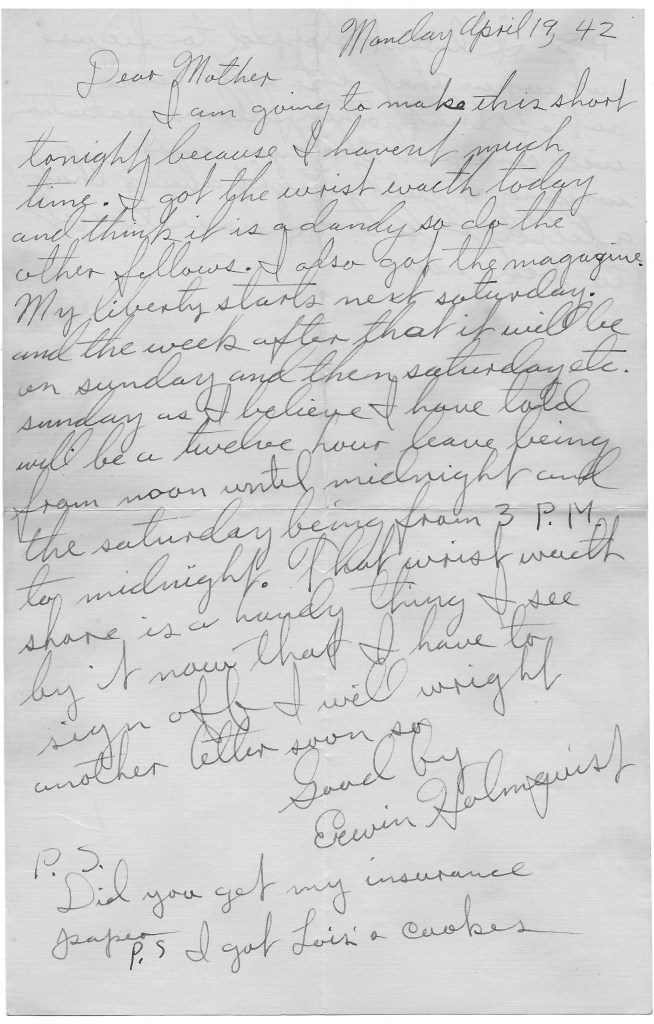 Monday April 19, 42
Dear Mother
I am going to make this short
tonight, because I havent much
time. I got the wrist wacth today
and think it is a dandy so do the
other fellows. I also got the magazine.
My liberty starts next saturday.
and the week after that it will be
on sunday and them saturday etc.
sunday as I believe I have told
will be a twelve hour leave being
from noon until midnight and
the saturday being from 3 P.M.
to midnight. That wrist wacth
shore is a handy thing I see
by it now that I have to
sign off I will wright
another letter soon so
Good by
Erwin Holmquist
P.S.
Did you get my insurance
paper
P.S I got Lois's cookes